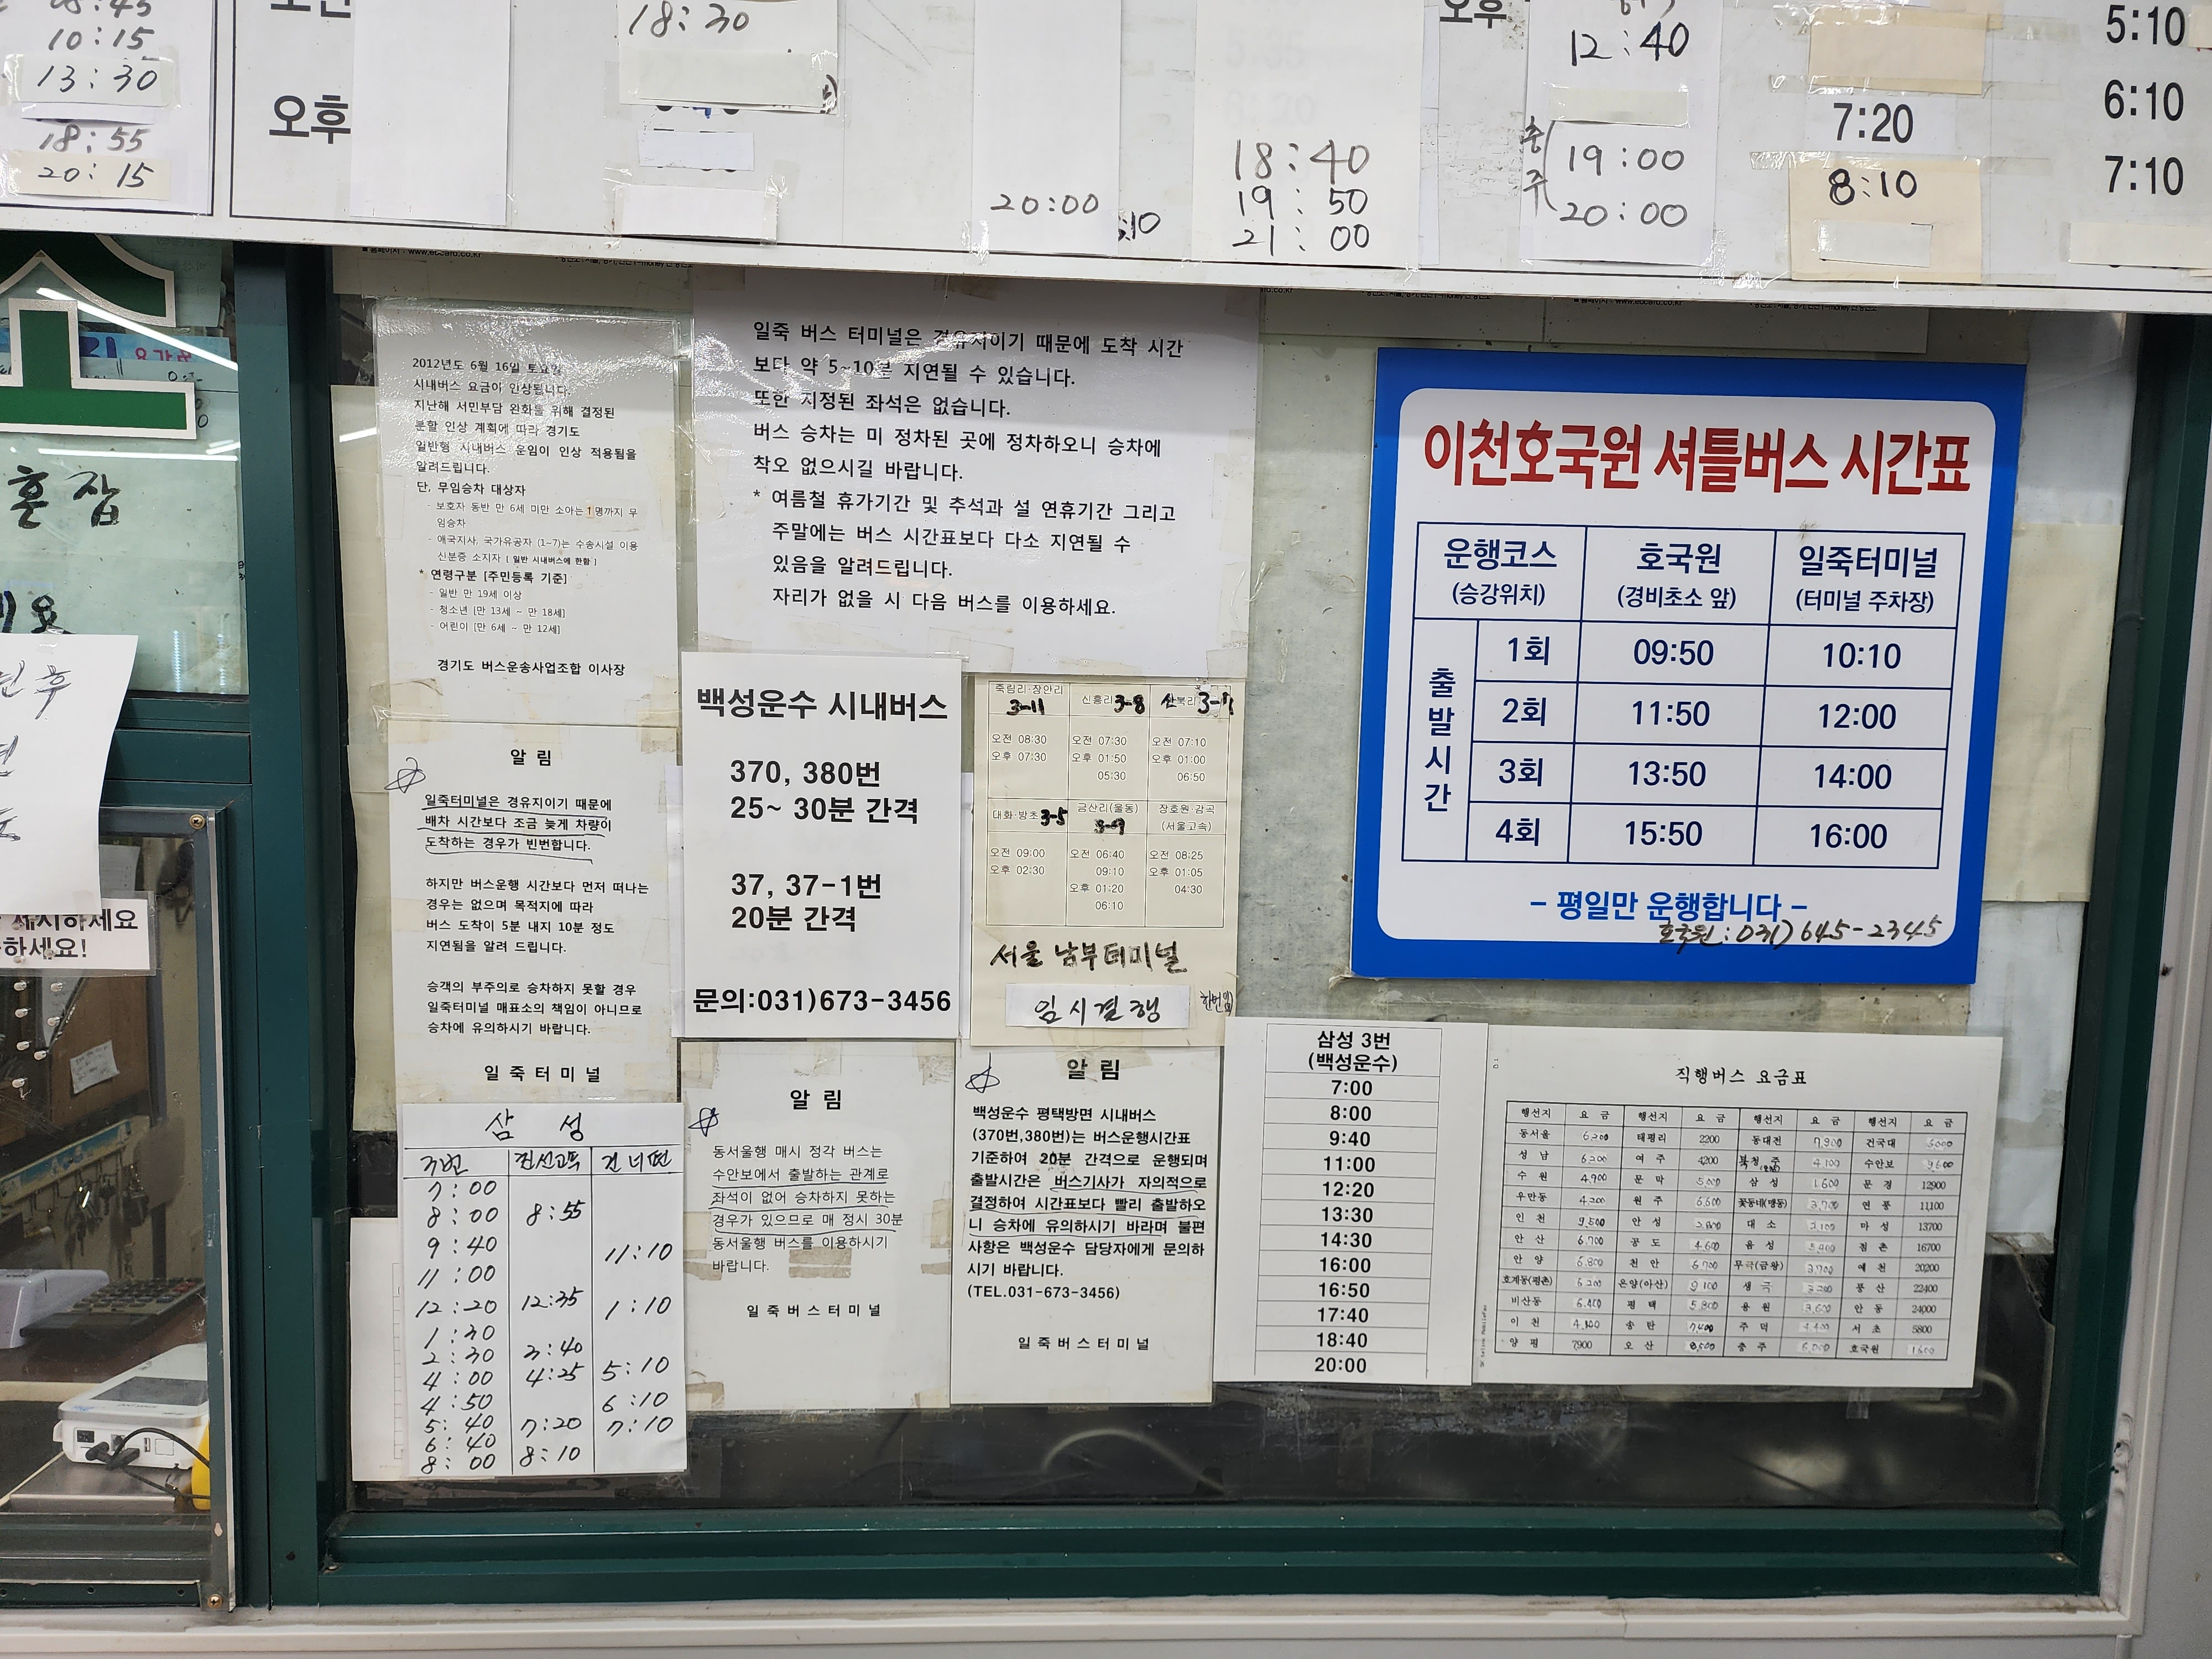 08:45
10:15
13:30
18:55
20:15
오후
18:30
20:00
18:40
19:50
21:00
오후
12:40
충주
19:00
20:00
7:20
8:10
5:10
6:10
7:10
2012년도 6월 16일 토요일
시내버스 요금이 인상됩니다.
지난해 서민부담 완화를 위해 결정된
분할 인상 계획에 따라 경기도
일반형 시내버스 운임이 인상 적용됨을
알려드립니다.
단, 무임승차 대상자
- 보호자 동반 만 6세 미만 소아는 1명까지 무
임승차
- 애국지사, 국가유공자 (1~7)는 수송시설 이용
신분증 소지자 [ 일반 시내버스에 한함 ]
* 연령구분 [주민등록 기준]
- 일반 만 19세 이상
- 청소년 [만 13세 ~ 만 18세]
- 어린이 [만 6세 ~ 만 12세]
경기도 버스운송사업조합 이사장
일죽 버스 터미널은 경유지이기 때문에 도착 시간
보다 약 5~10분 지연될 수 있습니다.
또한 지정된 좌석은 없습니다.
버스 승차는 미 정차된 곳에 정차하오니 승차에
착오 없으시길 바랍니다.
* 여름철 휴가기간 및 추석과 설 연휴기간 그리고
주말에는 버스 시간표보다 다소 지연될 수
있음을 알려드립니다.
자리가 없을 시 다음 버스를 이용하세요.
이천호국원 셔틀버스 시간표
운행코스 호국원 일죽터미널
(승강위치) (경비초소 앞) (터미널 주차장)
출발시간
1회 09:50 10:10
2회 11:50 12:00
3회 13:50 14:00
4회 15:50 16:00
- 평일만 운행합니다 -
호국원 : 031) 645-2345
알 림
일죽터미널은 경유지이기 때문에
배차 시간보다 조금 늦게 차량이
도착하는 경우가 빈번합니다.
하지만 버스운행 시간보다 먼저 떠나는
경우는 없으며 목적지에 따라
버스 도착이 5분 내지 10분 정도
지연됨을 알려 드립니다.
승객의 부주의로 승차하지 못할 경우
일죽터미널 매표소의 책임이 아니므로
승차에 유의하시기 바랍니다.
일 죽 터 미 널
백성운수 시내버스
370, 380번
25~ 30분 간격
37, 37-1번
20분 간격
문의:031)673-3456
죽림리·장안리 신흥리
3-11 3-8
오전 08:30 오전 07:30 오전 07:10
오후 07:30 오후 01:50 오후 01:00
05:30 06:50
대화·방초 3-5 금산리(울동) 장호원·감곡
3-9 (서울고속)
오전 09:00 오전 06:40 오전 08:25
오후 02:30 09:10 오후 01:05
오후 01:20 04:30
06:10
서울 남부터미널
임시결행
삼 성
3번 진선고속 건너편
7:00
8:00 8:55
9:40 11:10
11:00
12:20 12:35 1:10
1:30
2:30 3:40
4:00 4:25 5:10
4:50 6:10
5:40 7:20 7:10
6:40
8:00 8:10
알 림
동서울행 매시 정각 버스는
수안보에서 출발하는 관계로
좌석이 없어 승차하지 못하는
경우가 있으므로 매 정시 30분
동서울행 버스를 이용하시기
바랍니다.
일 죽 버 스 터 미 널
알 림
백성운수 평택방면 시내버스
(370번,380번)는 버스운행시간표
기준하여 20분 간격으로 운행되며
출발시간은 버스기사가 자의적으로
결정하여 시간표보다 빨리 출발하오
니 승차에 유의하시기 바라며 불편
사항은 백성운수 담당자에게 문의하
시기 바랍니다.
(TEL.031-673-3456)
일 죽 버 스 터 미 널
삼성 3번
(백성운수)
7:00
8:00
9:40
11:00
12:20
13:30
14:30
16:00
16:50
17:40
18:40
20:00
직행버스 요금표
행선지 요 금 행선지 요 금 행선지 요 금 행선지 요 금
동서울 6,200 태평리 2200 동대전 7,900 건국대
성 남 6,200 여 주 4200 북청주 4,100 수안보
수 원 4,900 문 막 5,000 삼 성 1,600 문 경 12900
우만동 4,200 원 주 6,600 꽃동네(맹동) 연 풍 11,100
인 천 9,500 안 성 대 소 2,100 마 성 13700
안 산 6,700 공 도 4,600 음 성 점 촌 16700
안 양 6,800 천 안 6,700 무극(금왕) 예 천 20200
호계동(평촌) 6,200 온양(아산) 9,100 생 극 풍 산 22400
비산동 6,400 평 택 5,800 용 원 3,600 안 동 24000
이 천 송 탄 주 덕 서 초 5800
양 평 7900 오 산 충 주 호국원 1600
혼잡
하세요!